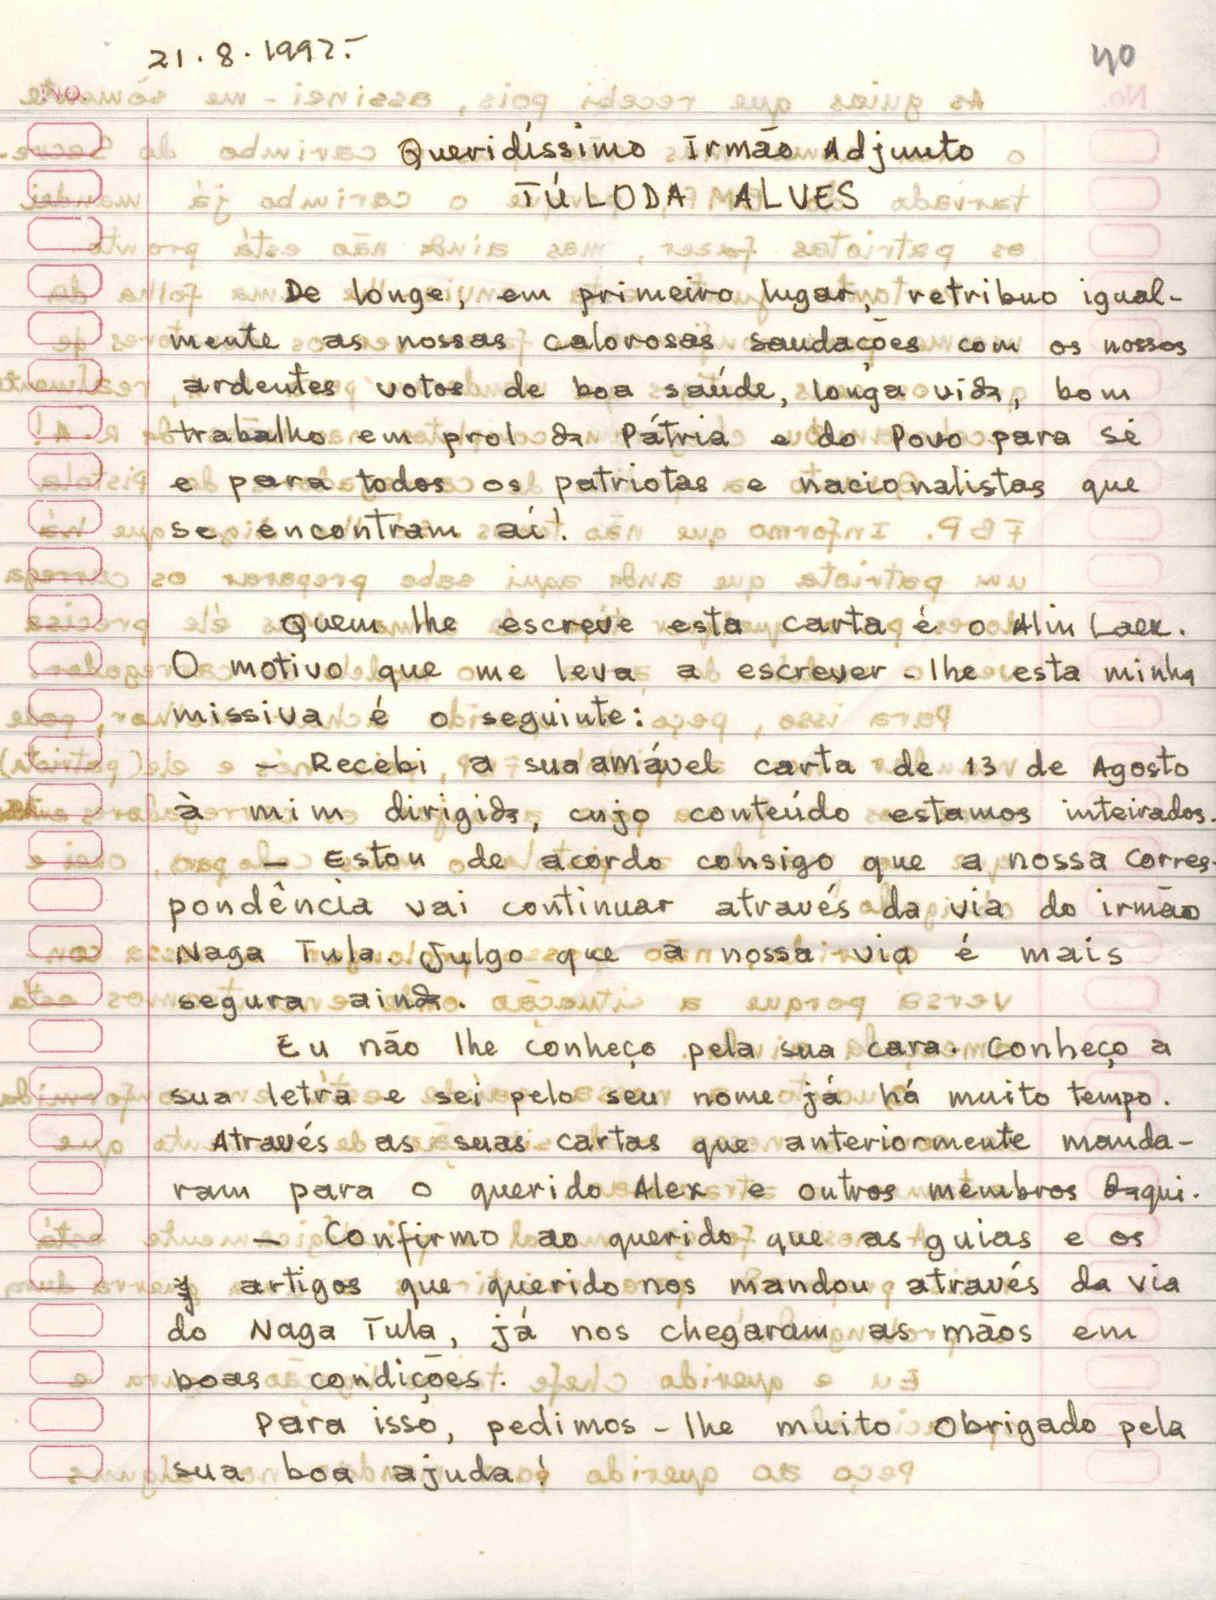 21.8.1992.-
40
No.
Queridíssimo Irmão Adjunto
TÚLODA ALVES
De longe, em primeiro lugar, retribuo igual-
mente as nossas calorosas saudações com os nossos
ardentes votos de boa saúde, longa vida, bom
trabalho em prol da Pátria e do Povo para sé
e para todos os patriotas e nacionalistas que
se encontram aí!
Quem lhe escreve esta carta é o Alin Laek.
O motivo que me leva a escrever-lhe esta minha
missiva é o seguinte:
- Recebi, a sua amável carta de 13 de Agosto
à mim dirigida, cujo conteúdo estamos inteirados.
- Estou de acordo consigo que a nossa corres-
pondência vai continuar através da via do irmão
Naga Tula. Julgo que a nossa via é mais
segura ainda.
Eu não lhe conheço pela sua cara. Conheço a
sua letra e sei pelo seu nome já há muito tempo.
Através as suas cartas que anteriormente manda-
ram para o querido Alex e outros membros daqui.
- Confirmo ao querido que as guias e os
artigos que querido nos mandou através da via
do Naga Tula, já nos chegaram as mãos em
boas condições.
Para isso, pedimos-lhe muito obrigado pela
sua boa ajuda!